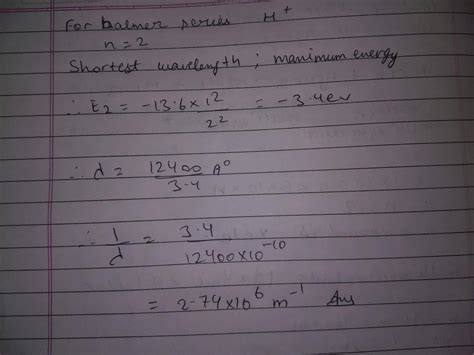 For balmer series H⁺
n = 2
Shortest wavelength ; manimum energy
∴ E₂ = -13.6 × 1² / 2² = -3.4 ev
∴ d = 12400 / 3.4 A⁰
∴ 1/d = 3.4 / 12400×10⁻¹⁰
= 2.74×10⁶ m⁻¹ Ans